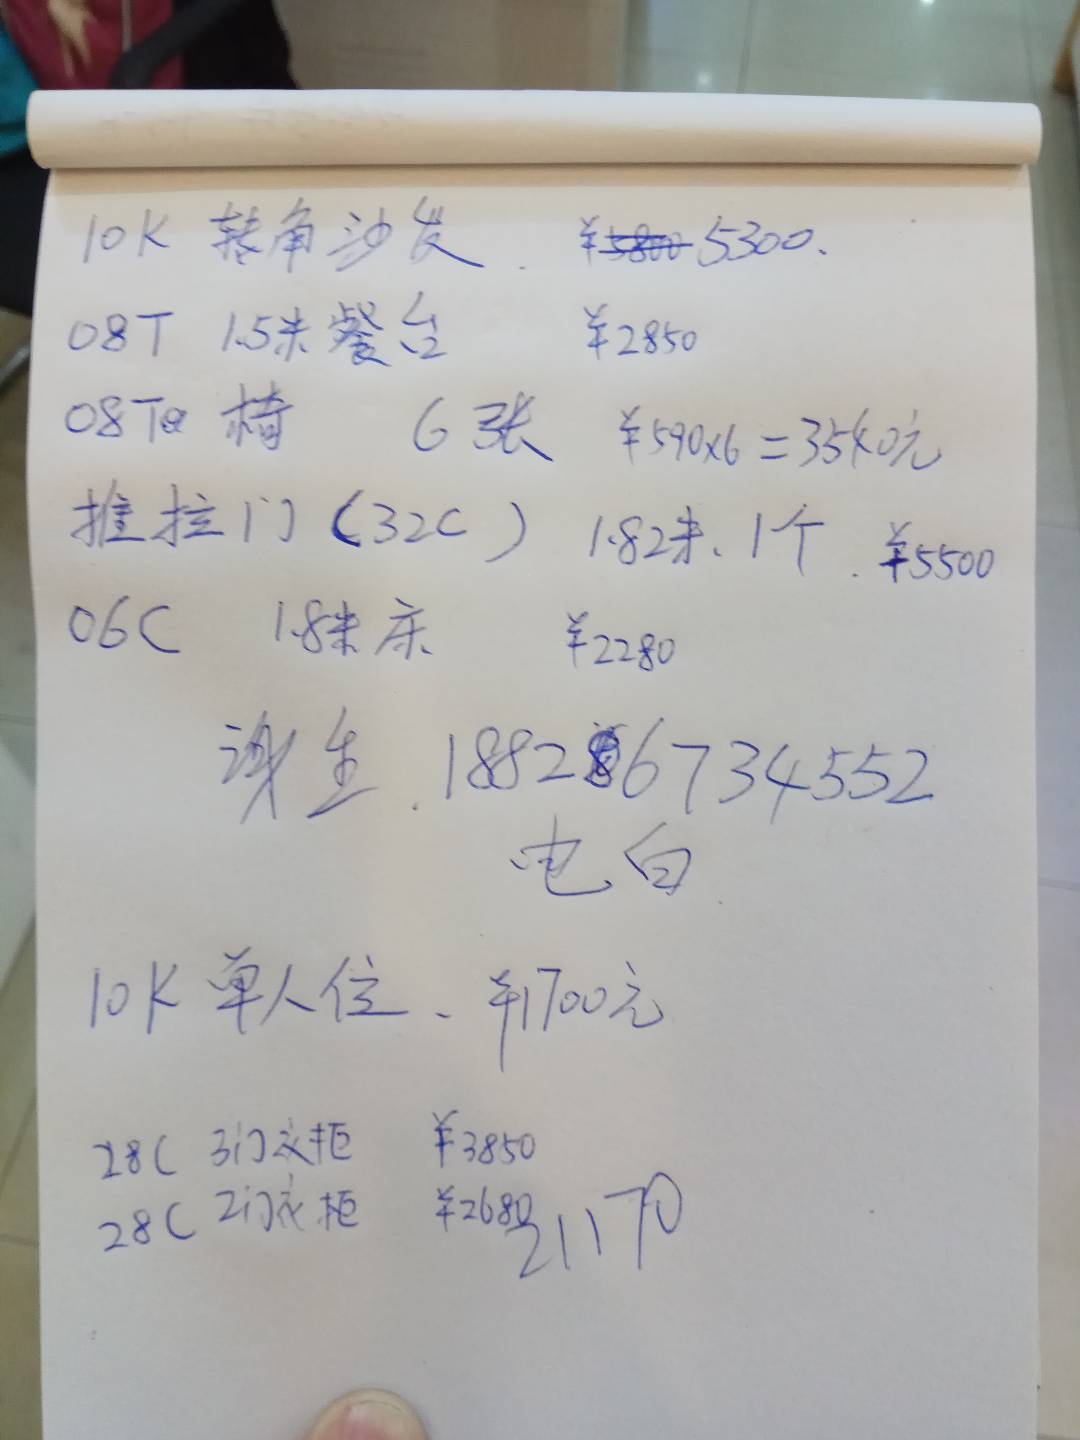 10K 转角沙发. ¥5800 5300.
08T 1.5米餐台 ¥2850
08Ta 椅 6张 ¥590x6=3540元
推拉门(32C) 1.82米、1个. ¥5500
06C 1.8米床 ¥2280
谢生. 18826734552
电白
10K 单人位、¥1700元
28C 3门衣柜 ¥3850
28C 2门衣柜 ¥2680
21170